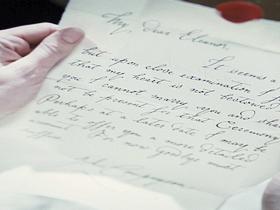 My dear Eleanor,
It seems
but upon close examination I
that my heart is not
you I cannot marry you and
not be present for that Ceremony
Perhaps at a later date I may be
able to offer you a more detailed
account. For now goodbye must
suffice